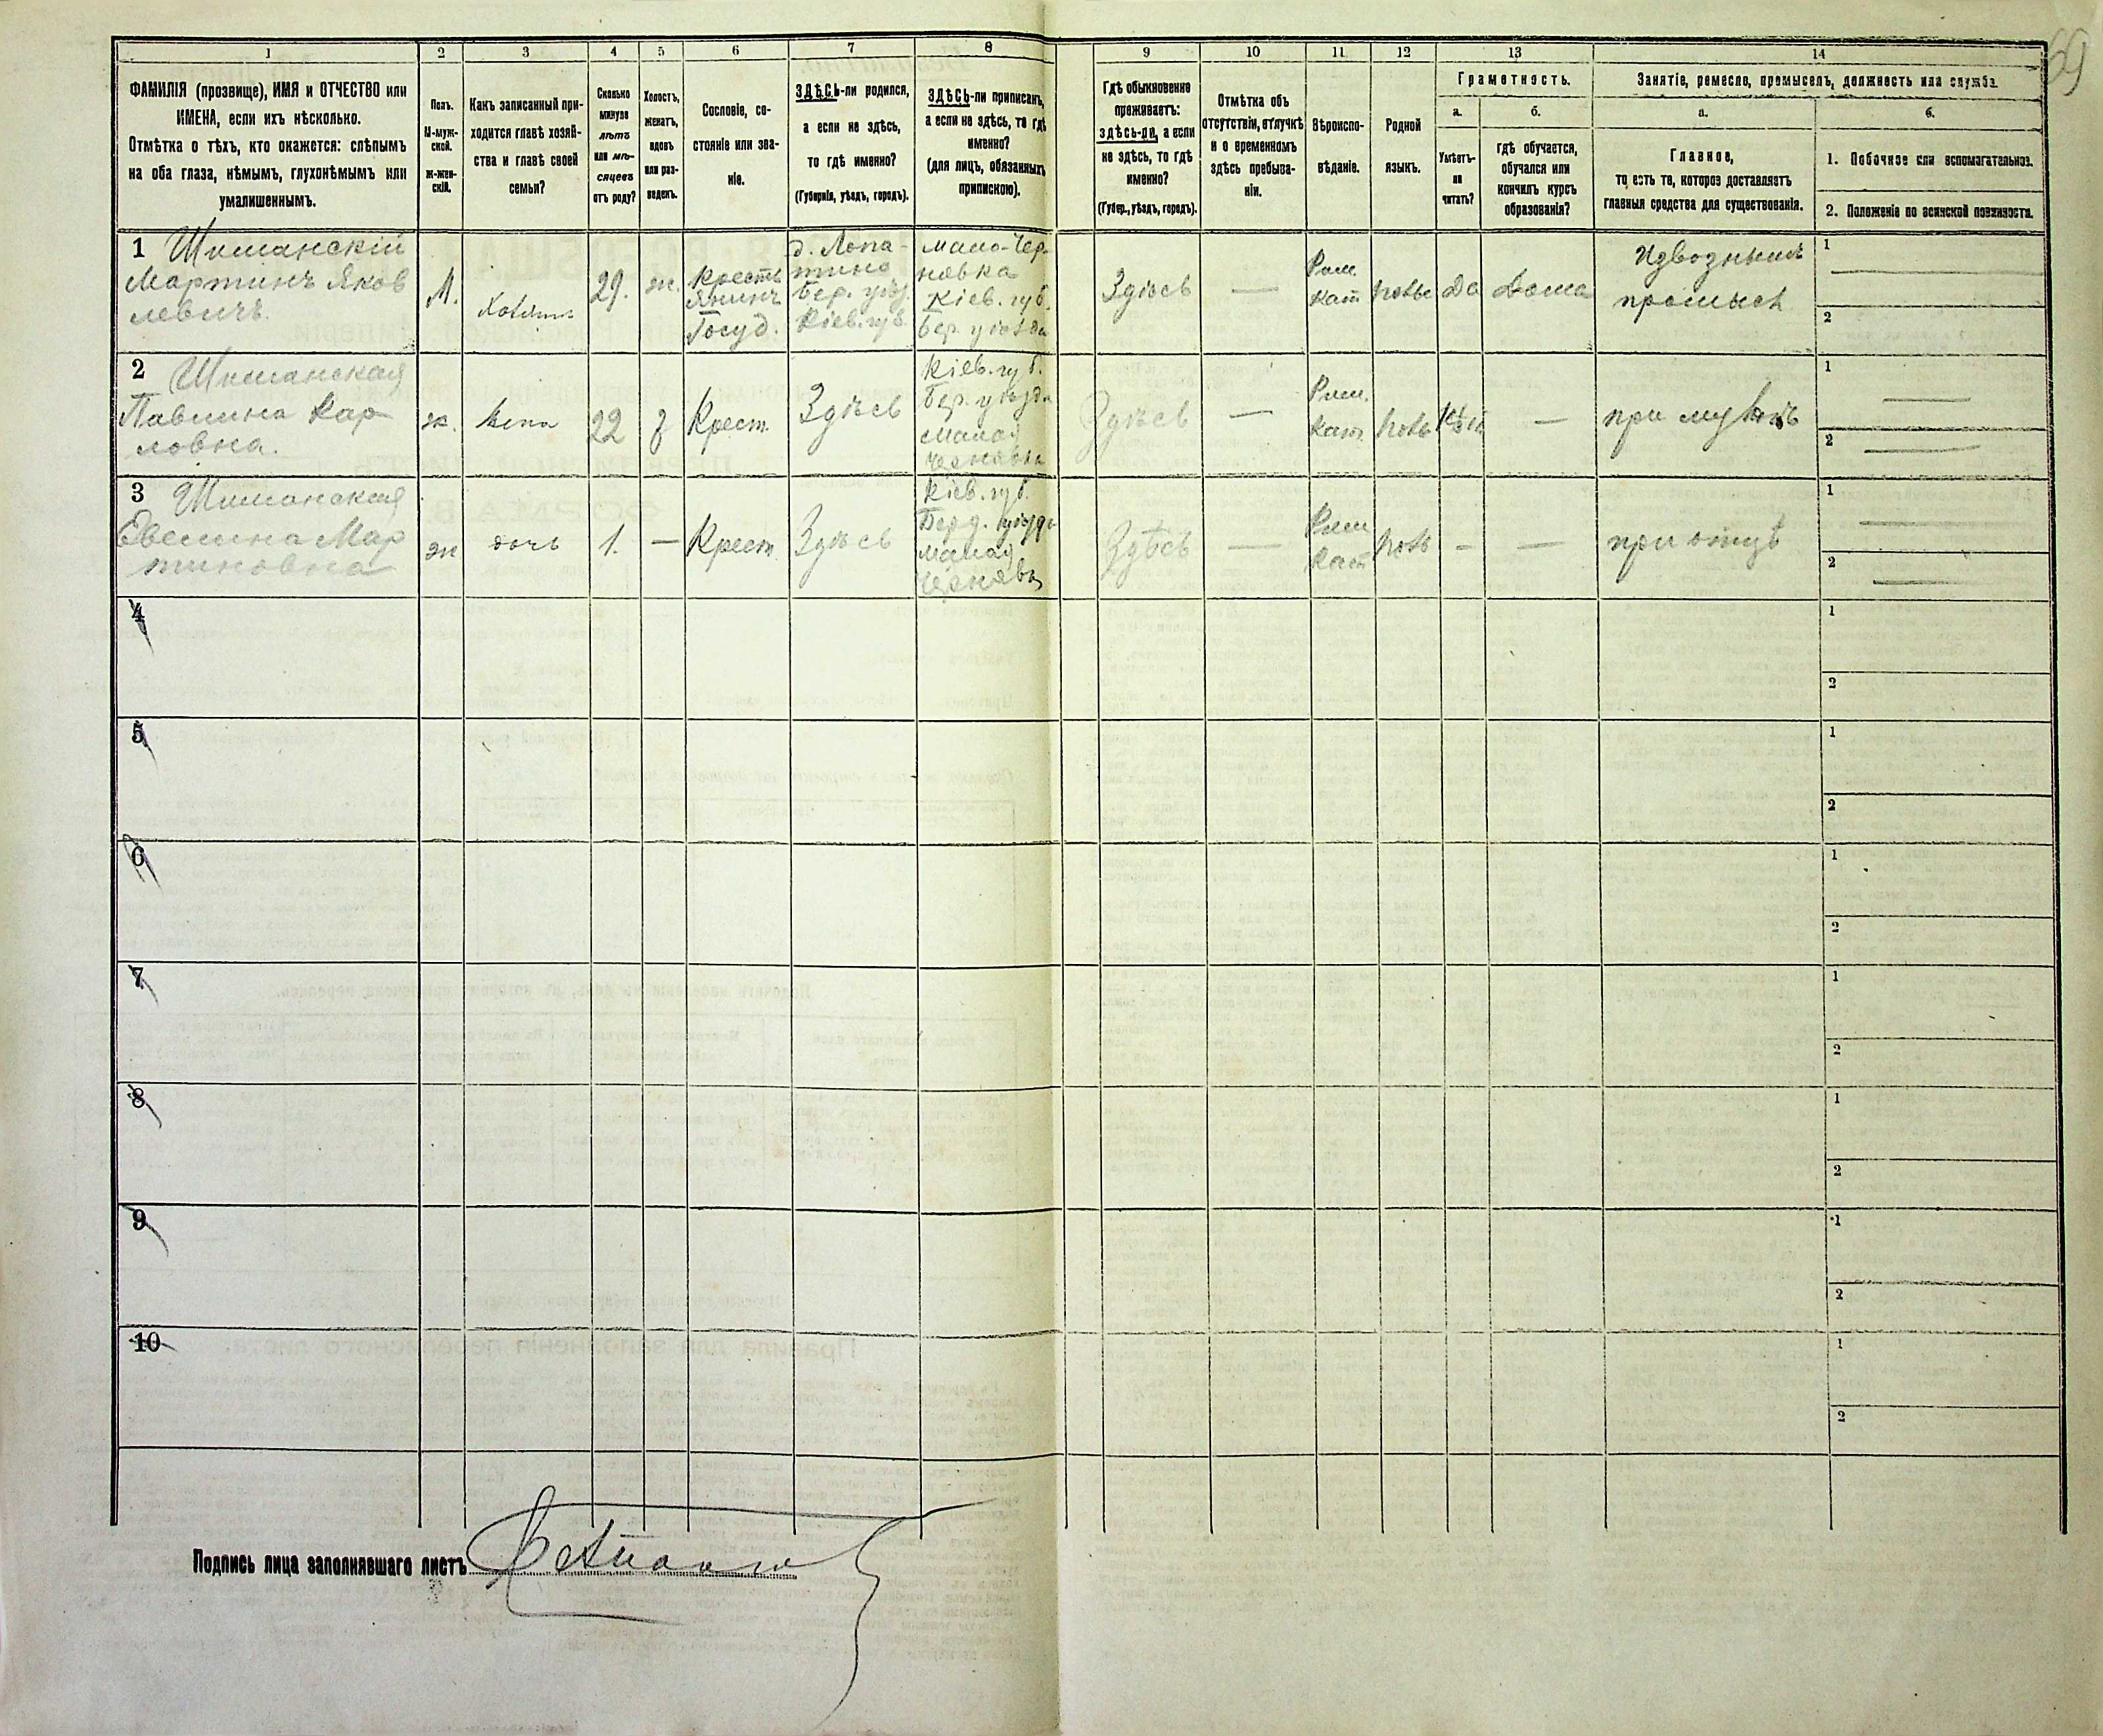 69
1
2
3
4
5
6
7
8
9
10
11
12
13
14
ФАМИЛІЯ (прозвище), ИМЯ и ОТЧЕСТВО или
ИМЕНА, если ихъ нѣсколько.
Отмѣтка о тѣхъ, кто окажется: слѣпымъ
на оба глаза, нѣмымъ, глухонѣмымъ или
умалишеннымъ.
Полъ.
М-муж-
ской.
ж-жен-
скій.
Какъ записанный при-
ходится главѣ хозяй-
ства и главѣ своей
семьи?
Сколько
минуло
лѣтъ
или мѣ-
сяцевъ
отъ роду?
Холостъ,
женатъ,
вдовъ
или раз-
веденъ.
Сословіе, со-
стояніе или зва-
ніе.
ЗДѢСЬ-ли родился,
а если не здѣсь,
то гдѣ именно?
(Губернія, уѣздъ, городъ).
ЗДѢСЬ-ли приписанъ,
а если не здѣсь, то гдѣ
именно?
(для лицъ, обязанныхъ
припискою).
Гдѣ обыкновенно
проживаетъ:
здѣсь-ли, а если
не здѣсь, то гдѣ
именно?
(Губер., уѣздъ, городъ).
Отмѣтка объ
отсутствіи, отлучкѣ
и о временномъ
здѣсь пребыва-
ніи.
Вѣроиспо-
вѣданіе.
Родной
языкъ.
Грамотность.
а.
Умѣетъ-
ли
читать?
б.
гдѣ обучается,
обучался или
кончилъ курсъ
образованія?
Занятіе, ремесло, промыселъ, должность или служба.
а.
Главное,
то есть то, которое доставляетъ
главныя средства для существованія.
б.
1. Побочное или вспомогательное.
2. Положеніе по воинской повинности.
1 Шиманскій
Мартинъ Яков
левичъ.
М.
29.
ж.
Кресть
янинъ
Госуд.
д. Лопа-
тино
Бер. уѣз.
Кіев. губ.
мало-Чер-
новка
Кіев. губ.
Бер. уѣзда
Здѣсь
—
Рим.
Кат
Да
дома
Изводнымъ
промысл
1
2
2 Шиманская
Павлина Кар
ловна.
ж.
жена
22
з
Крест.
Здѣсь
Кіев. губ.
Бер. уѣзда
Малая
Чернявка
Здѣсь
—
Рим.
Кат.
—
при мужѣ
1
2
3 Шиманская
Евелина Мар
тиновна
ж
дочь
1.
—
Крест.
Здѣсь
Кіев. губ.
Берд. уѣзда
Малая
Чернявка
Здѣсь
—
Рим
Кат
—
—
при отцѣ
1
2
4
1
2
5
1
2
6
1
2
7
1
2
8
1
2
9
1
2
10
1
2
Подпись лица заполнявшаго листъ